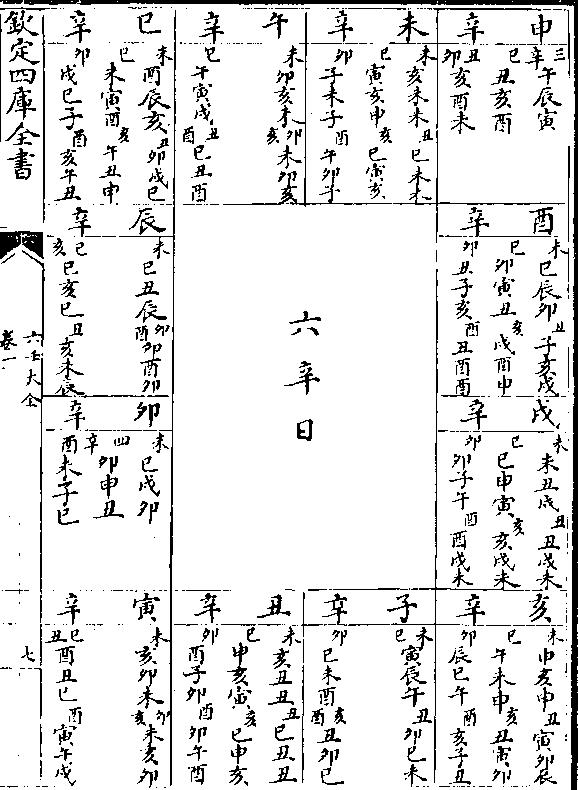 欽定四庫全書
申辛
三辛午辰寅
巳丑亥酉
丑卯亥酉未
未辛
未亥未未丑巳未未
巳寅亥申亥巳寅亥
卯子未子酉午卯子
午辛
未卯亥未卯亥未卯亥
巳午寅戌丑酉巳丑酉
巳辛
未酉辰亥丑卯戌巳
巳未寅酉亥午丑申
卯戌巳子酉亥午丑
酉辛
未巳辰卯丑子亥戌
巳卯寅丑亥戌酉申
卯丑子亥酉丑酉酉
六辛日
辰辛
未巳丑辰卯酉卯酉卯
巳亥巳亥巳丑亥未辰
戌辛
未未丑戌丑丑戌未
巳巳申寅亥亥戌未
卯卯子午酉酉戌未
卯辛
未巳戌卯
四辛卯申丑
酉未子巳
亥辛
未申亥申丑寅卯辰
巳午未申亥丑寅卯
卯辰巳午酉亥子丑
子辛
未巳寅辰午丑卯巳未
卯巳未酉亥酉丑卯巳
丑辛
未亥丑丑丑巳丑丑
巳申亥寅亥巳申亥
卯酉子卯酉卯午酉
寅辛
未亥卯未卯亥未亥卯
巳丑酉丑巳酉寅午戌
六壬大全
卷一
七